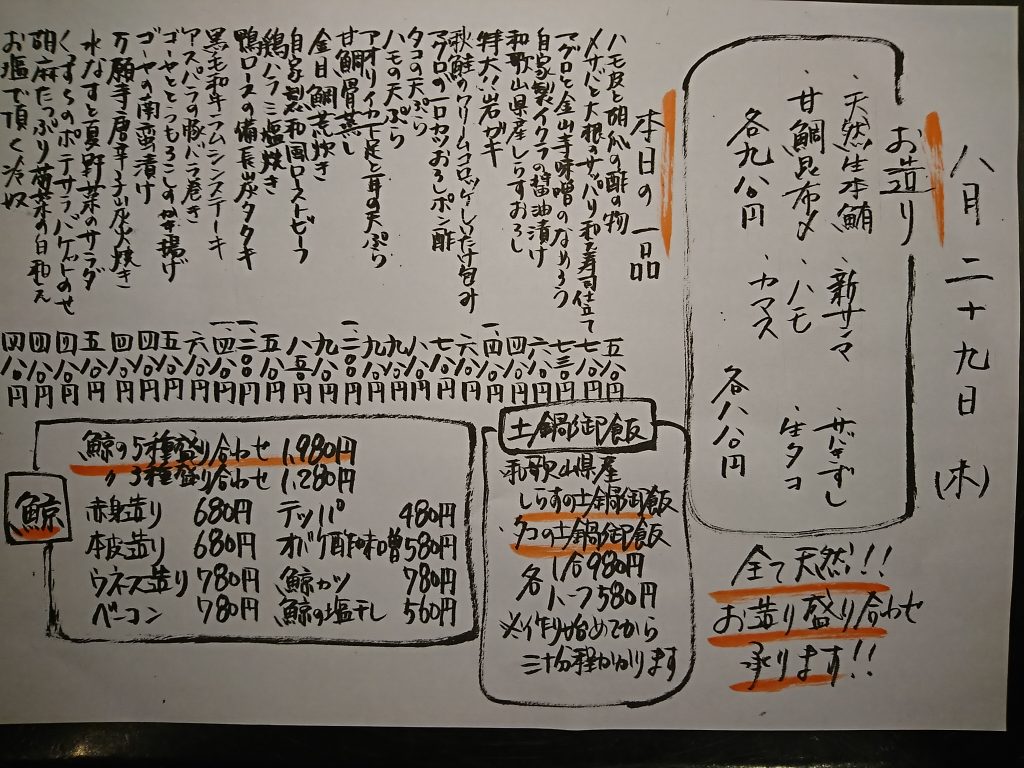 八月二十九日(木)
お造り
・天然生本鮪 ・新サンマ ・サバきずし
・甘鯛昆布〆 ・ハモ ・生タコ
各九八〇円 ・カマス 各八八〇円
全て天然!!
お造り盛り合わせ
承ります!!
本日の一品
ハモ皮と胡瓜の酢の物 五八〇円
〆サバと大根のサッパリ和え寿司仕立て 七八〇円
マグロと金山寺味噌のなめろう 七三〇円
自家製イクラの醤油漬け 六八〇円
和歌山県産しらすおろし 四八〇円
特大!!岩ガキ 一、四八〇円
秋鮭のクリームコロッケしいたけ包み 六八〇円
マグロの一口カツおろしポン酢 七八〇円
タコの天ぷら 八八〇円
ハモの天ぷら 九八〇円
アオリイカ下足と耳の天ぷら 九八〇円
甘鯛骨蒸し 一、二〇〇円
金目鯛荒炊き 九八〇円
自家製和風ローストビーフ 八五〇円
鶏ハラミ塩焼き 五八〇円
鴨ロースの備長炭タタキ 一、二〇〇円
黒毛和牛ランムシンステーキ 一、四八〇円
アスパラの豚バラ巻き 六八〇円
ゴーヤととうもろこしのかき揚げ 五八〇円
ゴーヤの南蛮漬け 四八〇円
万願寺唐辛子炭火焼き 四八〇円
水なすと夏野菜のサラダ 五八〇円
くじらのポテサラバケットのせ 四八〇円
胡麻たっぷり菊菜の白和え 四八〇円
お塩で頂く冷奴 四八〇円
土鍋御飯
和歌山県産
しらすの土鍋御飯
タコの土鍋御飯
各 1合980円
ハーフ580円
※作り始めてから
三十分程かかります
鯨
鯨の5種盛り合わせ 1,980円
〃 3種盛り合わせ 1,280円
赤身造り 680円 テッパ 480円
本皮造り 680円 オバケ酢味噌 580円
ウネス造り 780円 鯨カツ 780円
ベーコン 780円 鯨の塩干し 560円